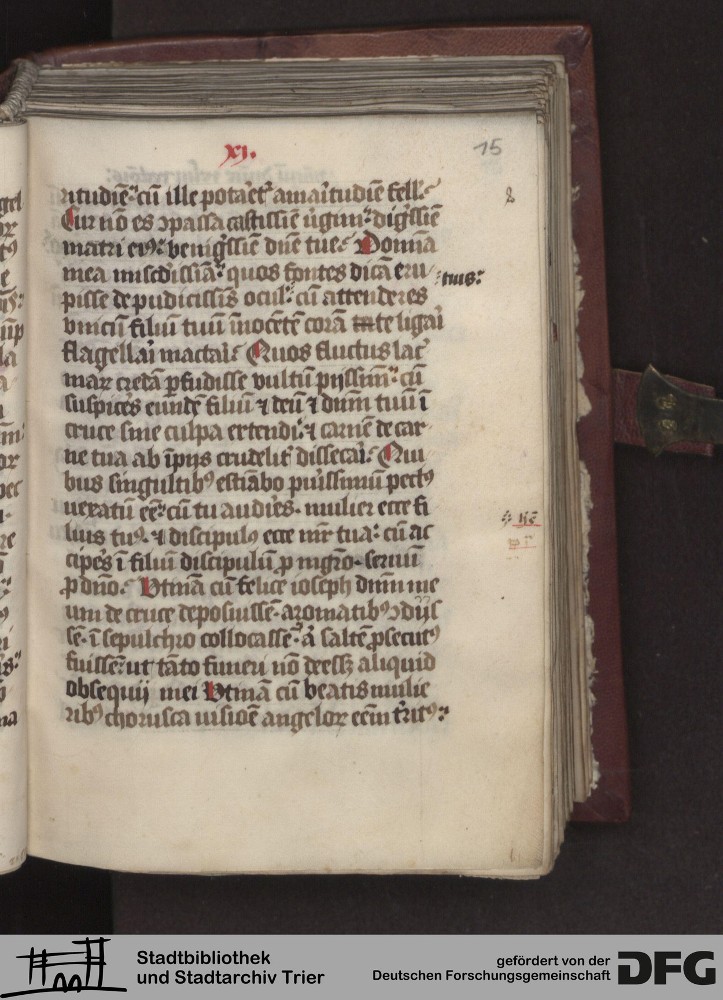 xj.
15
ritudie᷑. cū ille potaret᷑ amaritudīe fell᷑.
Cur nō es ɔpassa castissīe v̄gini. digissīe
matri eiꝰ. benigissīe dn̄e tue. Domina
mea misc̄dissīa. quos fontes dicā eru
tuis.
pisse de pudicissīs ocul᷑. cū attenderes
vnicū filiū tuū īnocētē corā te ligari
flagellari mactari. Quos fluctus lac
maꝝ credā ꝑfudisse vultū pijssim̄. cū
suspices eundē filiū ⁊ deū ⁊ dn̄m tuū ī
cruce sine culpa extendi. ⁊ carnē de car
ne tua ab īpijs crudelit᷑ dissecari. Qui
bus singultibꝰ estīabo purissimū pectꝰ
uexatū eē. cū tu audires. mulier ecce fi
lius tuꝰ. ⁊ discipulꝰ ecce mr̄ tua. cū ac
cipes ī filiū discipulū ꝓ mgr̄o. seruū
ꝓ dn̄o. Vtinā cū felice ioseph dn̄m me
um de cruce deposuissē. aromatibꝰ ɔdijs
sē. ī sepulchro collocassē. a᷑ saltē ꝓsecutꝰ
fuissē. ut tāto funeri nō deessꝫ aliquid
obsequij mei Vtinā cū beatis mulie
ribꝰ chorusca uisiōe angeloꝝ eēm t̄ritꝰ.
Stadtbibliothek
und Stadtarchiv Trier
gefördert von der
Deutschen Forschungsgemeinschaft
DFG